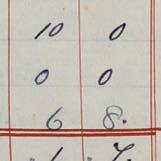 10 0
0 0
6 8.